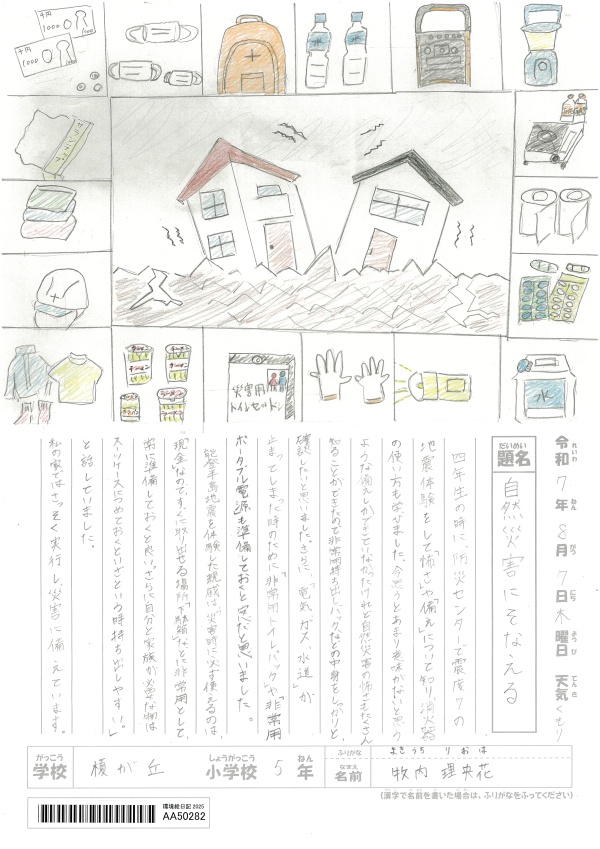 千円
1000
千円
1000
水
水
サランラップ
災害用
トイレセット
水
令和 7年 8月 7日 木曜日 天気 くもり
れいわ ねん がつ にち ようび てんき
だいめい
題名
自然災害にそなえる
四年生の時に、防災センターで震度7の
地震体験をして「怖さ」や「備え」について知り、消火器
の使い方も学びました。今思うとあまり意味がないと思う
ような備えしかできていなかったけれど自然災害の怖さをたくさん
知ることができたので非常用持ち出しバックなどの中身をしっかりと、
確認したいと思いました。さらに、「電気、ガス、水道」が
止まってしまった時のために「非常用トイレ、パック」や「非常用
ポータブル電源」も準備しておくと安心だと思いました。
能登半島地震を体験した親戚は「災害時に必ず使えるのは、
現金」なので、すぐに取り出せる場所「下駄箱」などに非常用として、
常に準備しておくと良い。さらに自分と家族が必要な物は
スーツケースにつめておくといざという時持ち出しやすい。」
と話していました。
私の家ではさっそく実行し、災害に備えています。
がっこう しょうがっこう ねん
学校 榎が丘 小学校 5 年
ふりがな まきうち りおは
なまえ
名前 牧内 理央花
(漢字で名前を書いた場合は、ふりがなをふってください)
環境絵日記 2025
AA50282